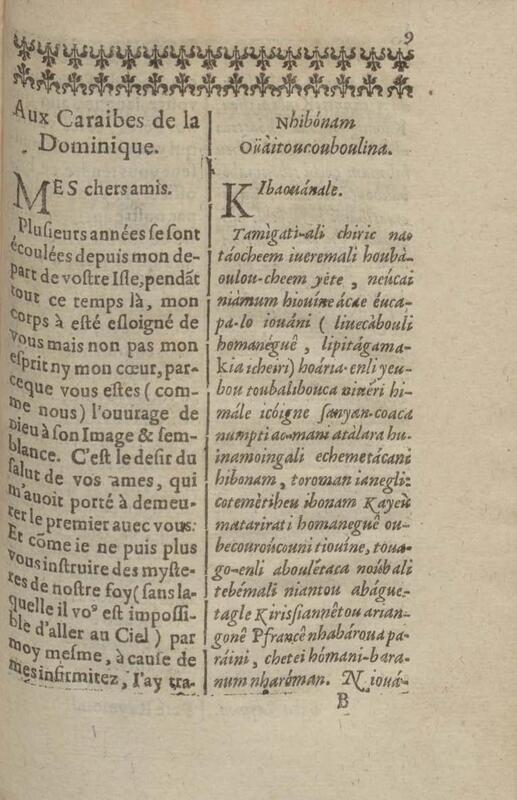 9
Aux Caraibes de la
Dominique.
MES chers amis.
Plusieurs années se sont
écoulées depuis mon de-
part de vostre Isle, pendāt
tout ce temps là, mon
corps à esté esloigné de
vous mais non pas mon
esprit ny mon cœur, par-
ceque vous estes (com-
me nous) l'ouurage de
Dieu à son Image & sem-
blance. C'est le desir du
salut de vos ames, qui
m'auoit porté à demeu-
rer le premier auec vous:
Et cōme ie ne puis plus
vous instruire des myste-
res de nostre foy (sans la-
quelle il voꝰ est impossi-
ble d'aller au Ciel) par
moy mesme, à cause de
mes infirmitez, I'ay tra-
Nhibónam
Oüàitoucouboulina.
KIbaouánale.
Tamìgati-ali chiric nao
táocheem iueremali houbà-
oulou-cheem yéte, neúcai
niámum hiouíne ácae éuca-
pa-lo iouáni (liuecàbouli
homanéguê, lipitágama-
kia icheiri) hoária-enli yeu-
bou toubalibouca vinéri hi-
mále icóigne sanyan-coaca
numpti ao-mani atàlara hu-
inamoingali echemetácani
hibonam, toroman ianegli:
cotemètiheu ibonam Kayeù
matarirati homaneguê ou-
becouroúcouni tiouíne, toua-
go-enli aboulétaca noúbali
tebémali niantou abágue-
tagle Kirissiannêtou arian-
gonê Pfrancê nhabároua pa-
ráini, chetei hómani-bara-
num nharóman. N iouá-
B